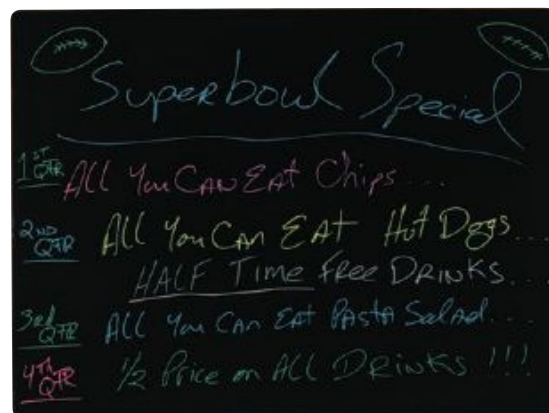 Superbowl Special
1ST QTR All You CAN EAt Chips...
2ND QTR All You CAn EAt Hot Dogs...
HALF Time free DRINKS...
3rd QTR All You CAn EAt PAStA SALAd...
4TH QTR 1/2 Price on ALL DRINKS !!!